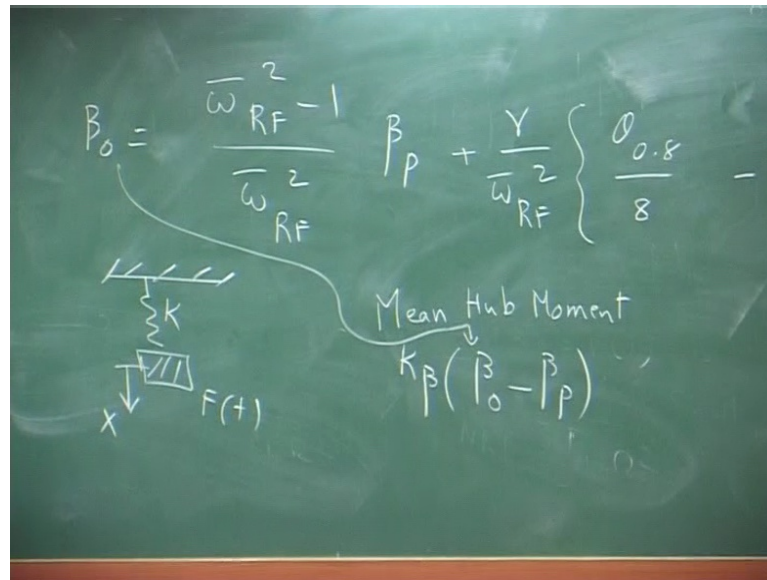 β₀ = (ω̄²_RF − 1) / ω̄²_RF β_P + γ / ω̄²_RF { θ₀.₈ / 8 −
K
X
F(t)
Mean Hub Moment
K_β(β₀ − β_P)